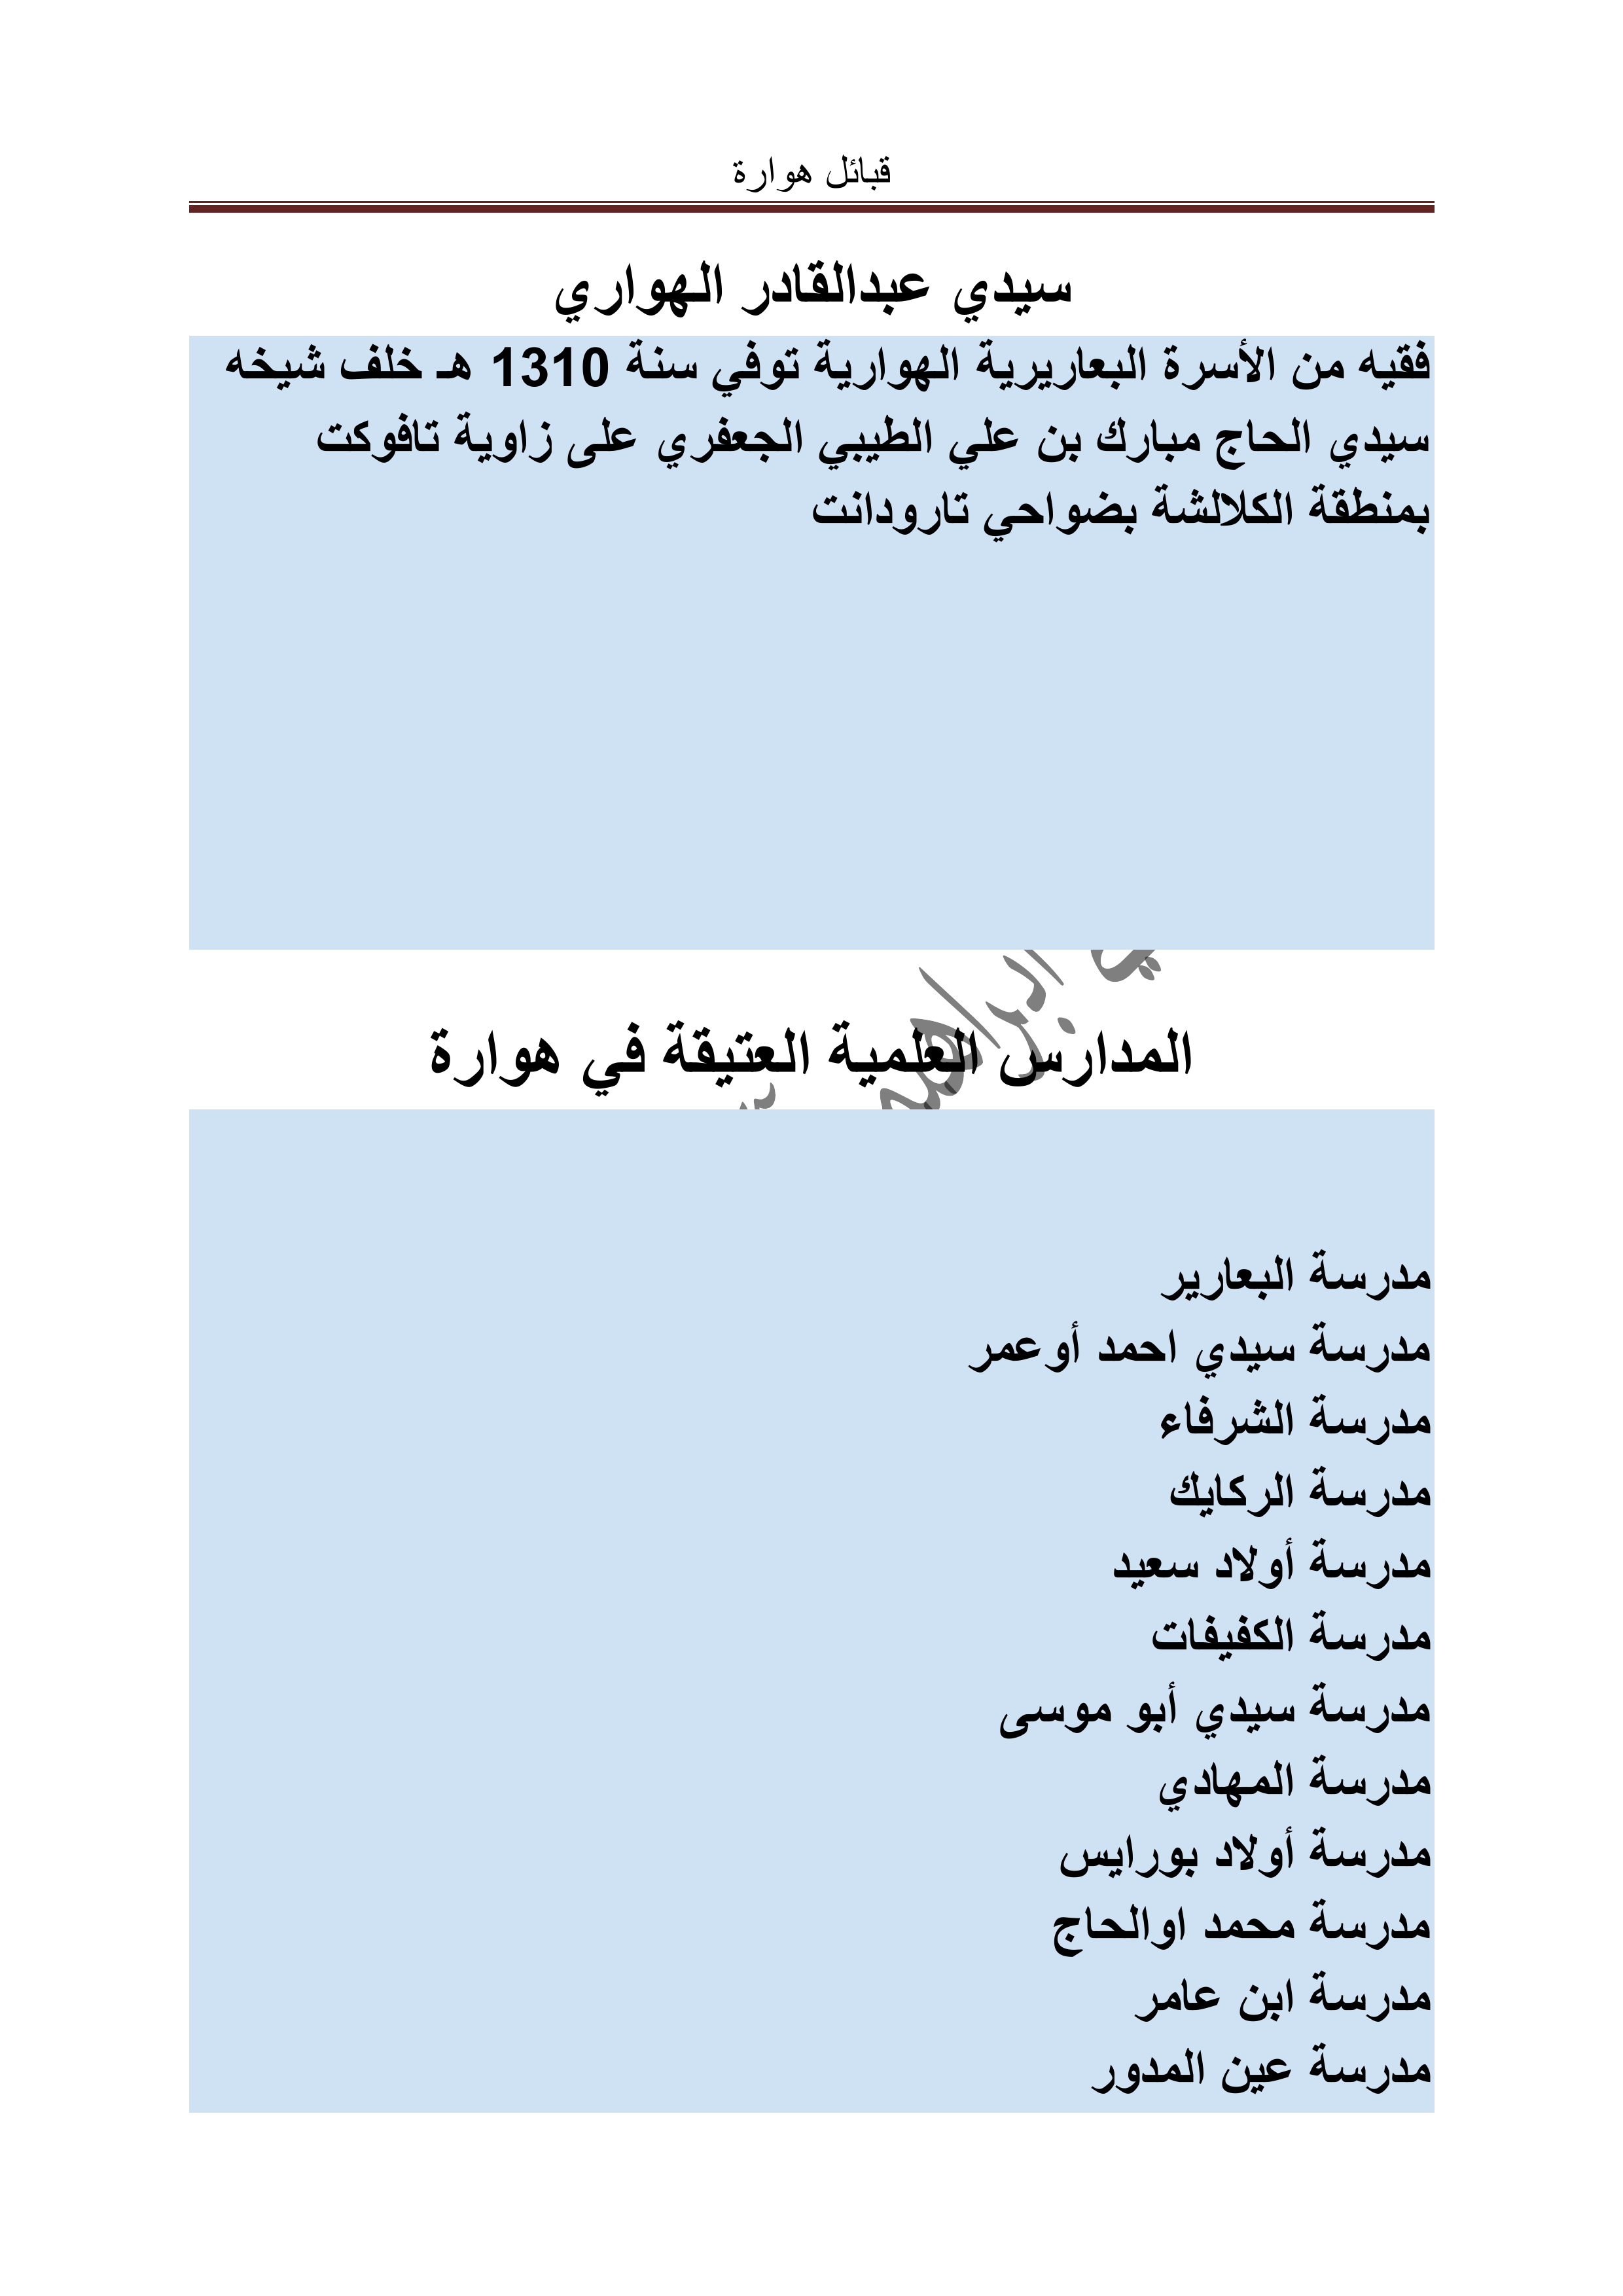 قبائل هوارة
سيدي عبدالقادر الهواري
فقيه من الأسرة البعاريرية الهوارية توفي سنة 1310 هـ خلف شيخه
سيدي الحاج مبارك بن علي الطيبي الجعفري على زاوية تافوكت
بمنطقة الكلالشة بضواحي تارودانت
المدارس العلمية العتيقة في هوارة
مدرسة البعارير
مدرسة سيدي احمد أوعمر
مدرسة الشرفاء
مدرسة الركايك
مدرسة أولاد سعيد
مدرسة الكفيفات
مدرسة سيدي أبو موسى
مدرسة المهادي
مدرسة أولاد بورايس
مدرسة محمد اوالحاج
مدرسة ابن عامر
مدرسة عين المدور